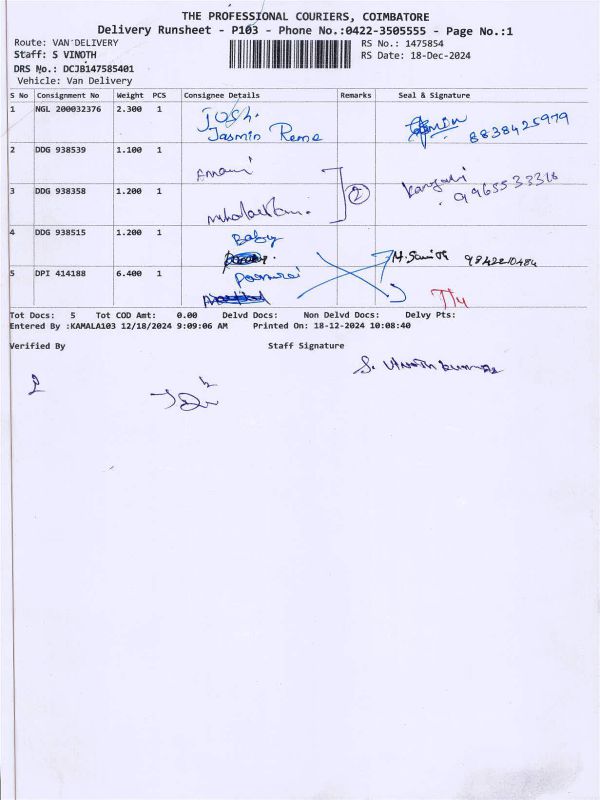 THE PROFESSIONAL COURIERS, COIMBATORE
Delivery Runsheet - P103 - Phone No.:0422-3505555 - Page No.:1
Route: VAN DELIVERY
RS No.: 1475854
Staff: S VINOTH
RS Date: 18-Dec-2024
DRS No.: DCJB147585401
Vehicle: Van Delivery
S No Consignment No Weight PCS Consignee Details Remarks Seal & Signature
1 NGL 200032376 2.300 1 Josh.
Jasmin Reme 8838425979
2 DDG 938539 1.100 1
3 DDG 938358 1.200 1 2
4 DDG 938515 1.200 1 Baby
9842210484
5 DPI 414188 6.400 1
Tot Docs: 5 Tot COD Amt: 0.00 Delvd Docs: Non Delvd Docs: Delvy Pts:
Entered By :KAMALA103 12/18/2024 9:09:06 AM Printed On: 18-12-2024 10:08:40
Verified By Staff Signature
S. Vinothkumar